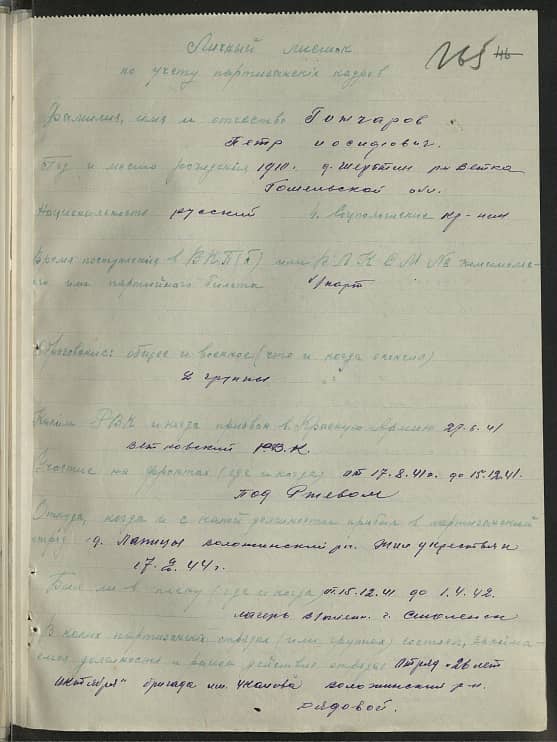 165 46
Личный листок
по учету партизанских кадров
Фамилия, имя и отчество Гончаров
Петр Иосифович.
Год и место рождения 1910. д. Шерстин рн Ветка
Гомельской обл.
Национальность русский 4. Соцположение кр-нин
Время поступления в ВКП(б) или ВЛКСМ № комсомольс-
ого или партийного билета б/парт
Образование: общее и военное (что и когда окончил)
2 группы
Каким РВК и когда призван в Красную Армию 27.6.41
Ветковский РВК.
Участие на фронтах (где и когда) от 17.8.41г. до 15.12.41.
под Ржевом
Откуда, когда и с какой должности прибыл в партизанский
отряд д. Воложинский рн. жил у крестьян
17. 44 г.
Был ли в плену (где и когда) от 15.12.41 до 1.4.42.
лагерь в/плен. г. Смоленск
В каких партизанских отрядах (или группах) состоял, занима-
емая должность и район действия отряда Отряд "26 лет
Октября" бригада им. Чкалова воложинский р-н.
рядовой.